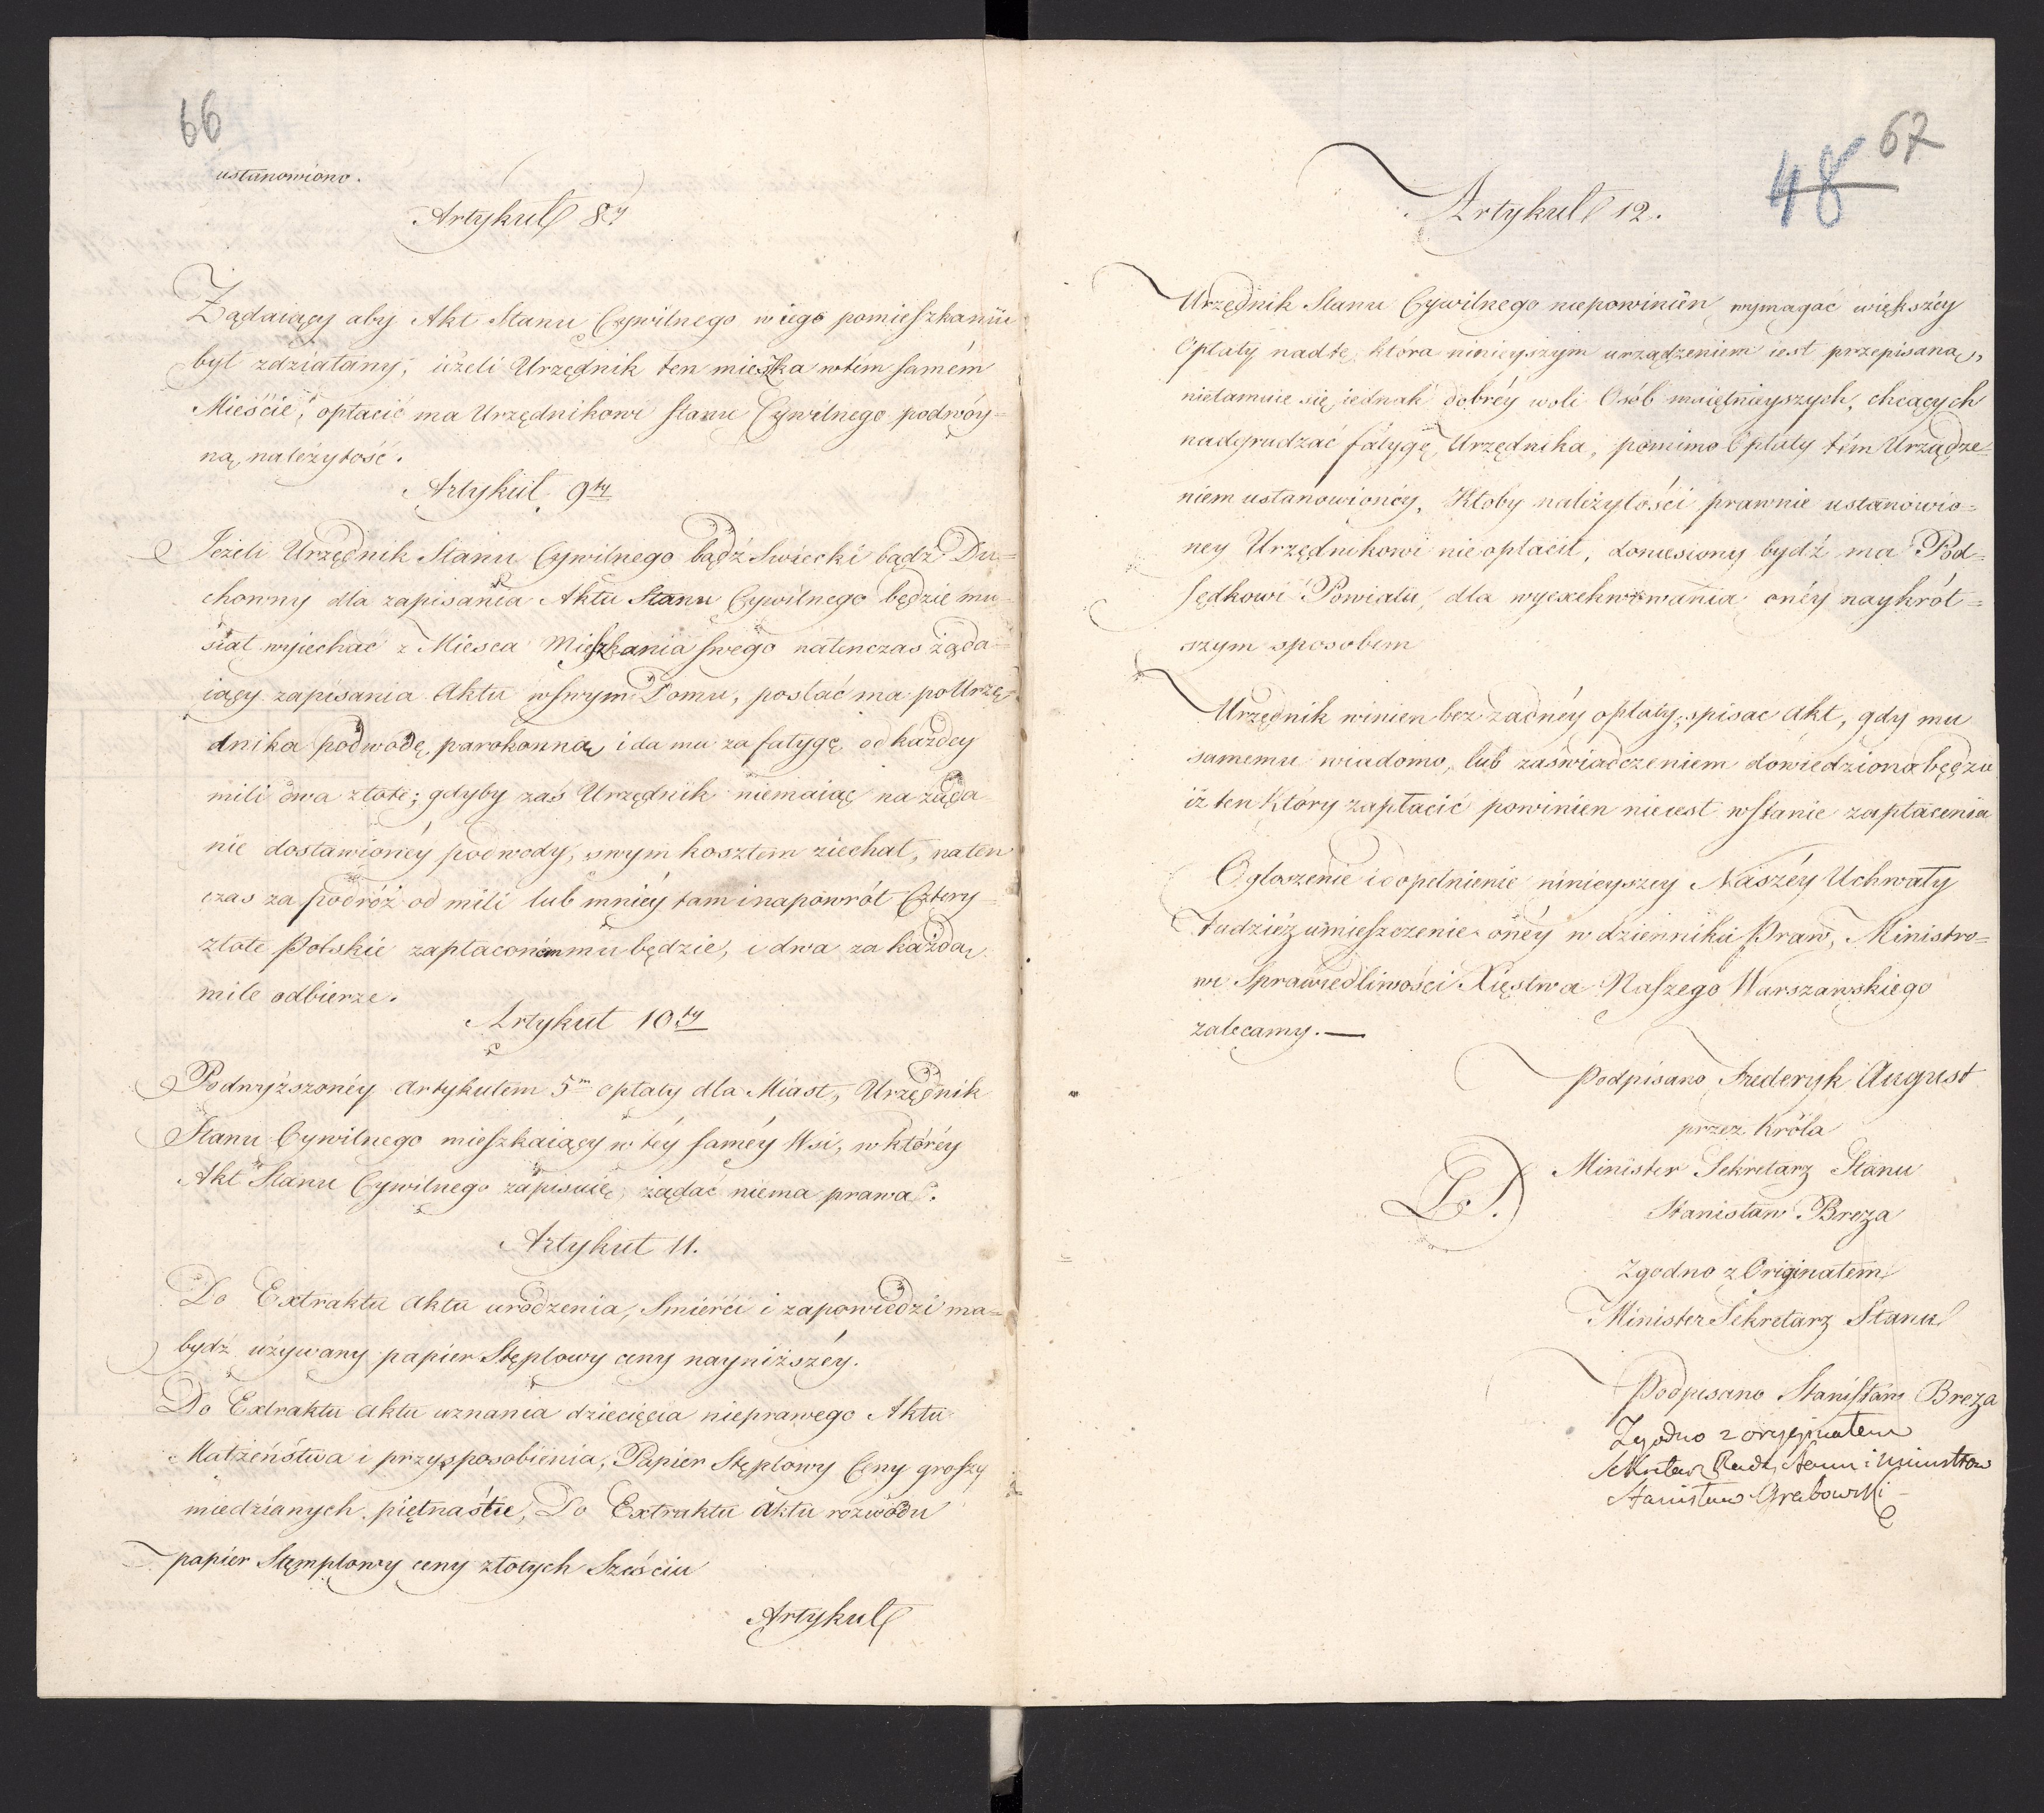 66
ustanowiono.
Artykuł 8y
Żądaiący aby Akt Stanu Cywilnego w iego pomieszkaniu
był zdziałany, ieżeli Urzędnik ten mieszka w tém samém
Mieście, opłacić ma Urzędnikowi stanu Cywilnego podwóy=
ną należytość.
Artykuł 9ty
Jeżeli Urzędnik Stanu Cywilnego bądź Swiecki bądź Du=
chowny dla zapisania Aktu Stanu Cywilnego będzie mu=
siał wyiechać z Mieysca Mieszkania swego natenczas żąda=
iący zapisania Aktu w swym Domu, posłać ma po Urzę=
dnika podwodę parokonną i da mu za fatygę od każdey
mili dwa złote; gdyby zaś Urzędnik niemaiąc na żąda=
nie dostawionéy podwody, swym kosztem ziechał, naten
czas za podróż od mili lub mniéy tam i napowrót Cztery=
złote Polskie zapłaconem mu będzie, i dwa za każdą
mile odbierze.
Artykuł 10ty
Podwyższonéy Artykułem 5m opłaty dla Miast, Urzędnik
Stanu Cywilnego mieszkaiący w téy saméy Wsi, w któréy
Akt Stanu Cywilnego zapisuie, żądać niema prawa.
Artykuł 11.
Do Extraktu Aktu urodzenia, Smierći i zapowiedzi ma=
bydź używany papier Stęplowy ceny nayniższéy.
Do Extraktu Aktu uznania dziecięcia nieprawego Aktu
Małżeństwa i przysposobienia, Papier Stęplowy Ceny groszy
miedzianych piętnaście, Do Extraktu Aktu rozwodu
papier Stęmplowy ceny złotych Sześciu
Artykuł
67
48
Artykuł 12.
Urzędnik Stanu Cywilnego niepowinien wymagać większéy
Opłaty nad tę, która ninieyszym urządzeniem iest przepisaną,
nietamuie się iednak dobréy woli Osób maiętnieyszych, chcących
nadgradzać fatygę Urzędnika, pomimo Opłaty tém Urządze=
niem ustanowionéy. Ktoby należytości prawnie ustanowio=
ney Urzędnikowi nie opłacił, doniesiony bydź ma Pod=
sędkowi Powiatu, dla wyexekwowania onéy naykrót=
szym sposobem
Urzędnik winien bez żadnéy opłaty spisac Akt, gdy mu
samemu wiadomo, lub zaświadczeniem dowiedziono będzie
iż ten który zapłacić powinien nieiest w stanie zapłacenia
Ogłoszenie i dopełnienie ninieyszey Naszéy Uchwały
tudzież umieszczenie onéy w dzienniku Praw, Ministro=
wi Sprawiedliwości Xięstwa Naszego Warszawskiego
zalecamy.—
Podpisano Frederyk August
przez Króla
Minister Sekretarz Stanu
L. S.
Stanisław Breza
Zgodno z Originałem
Minister Sekretarz Stanu
Podpisano Stanisław Breza
Zgodno z oryginałem
Sekretarz Rady Stanu i Ministrów
Stanisław Grabowski